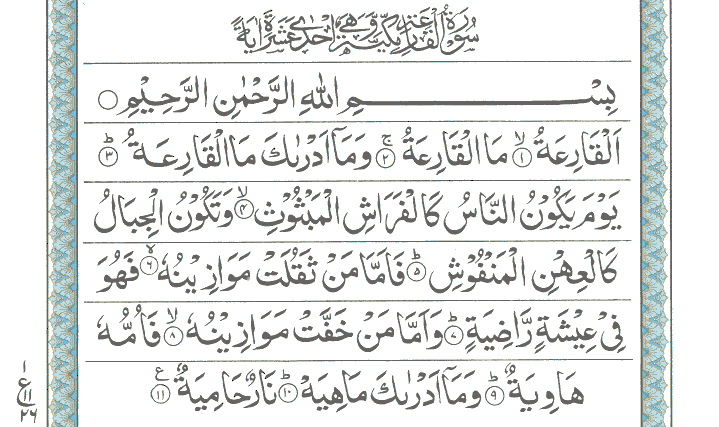 سُوْرَةُ الْقَارِعَةِ مَكِّيَّةٌ وَّهِيَ اِحْدٰى عَشْرَةَ اٰيَةً
بِسْمِ اللهِ الرَّحْمٰنِ الرَّحِيْمِ ○
اَلْقَارِعَةُ ۙ﴿۱﴾ مَا الْقَارِعَةُ ۚ﴿۲﴾ وَمَاۤ اَدْرٰىكَ مَا الْقَارِعَةُ ؕ﴿۳﴾
يَوْمَ يَكُوْنُ النَّاسُ كَالْفَرَاشِ الْمَبْثُوْثِ ۙ﴿۴﴾ وَتَكُوْنُ الْجِبَالُ
كَالْعِهْنِ الْمَنْفُوْشِ ؕ﴿۵﴾ فَاَمَّا مَنْ ثَقُلَتْ مَوَازِيْنُهٗ ۙ﴿۶﴾ فَهُوَ
فِيْ عِيْشَةٍ رَّاضِيَةٍ ؕ﴿۷﴾ وَاَمَّا مَنْ خَفَّتْ مَوَازِيْنُهٗ ۙ﴿۸﴾ فَاُمُّهٗ
هَاوِيَةٌ ؕ﴿۹﴾ وَمَاۤ اَدْرٰىكَ مَاهِيَهْ ؕ﴿۱۰﴾ نَارٌ حَامِيَةٌ ﴿۱۱﴾ ع
۱
ع
۱۱
۲۶